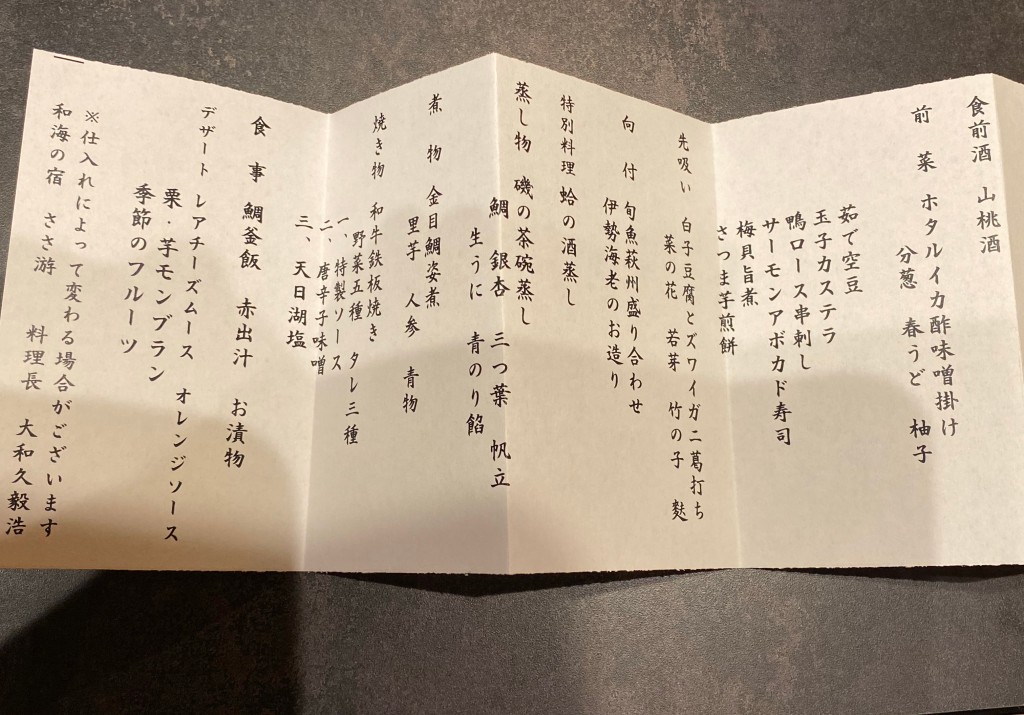 食前酒 山桃酒
前菜 ホタルイカ酢味噌掛け
分葱 春うど 柚子
茹で空豆
玉子カステラ
鴨ロース串刺し
サーモンアボカド寿司
梅貝旨煮
さつま芋煎餅
先吸い 白子豆腐とズワイガニ葛打ち
菜の花 若芽 竹の子 麩
向付 旬魚萩州盛り合わせ
伊勢海老のお造り
特別料理 蛤の酒蒸し
蒸し物 磯の茶碗蒸し
鯛 銀杏 三つ葉 帆立
生うに 青のり餡
煮物 金目鯛姿煮
里芋 人参 青物
焼き物 和牛鉄板焼き
野菜五種 タレ三種
一、特製ソース
二、唐辛子味噌
三、天日湖塩
食事 鯛釜飯 赤出汁 お漬物
デザート レアチーズムース オレンジソース
栗・芋モンブラン
季節のフルーツ
※仕入れによって変わる場合がございます
和海の宿 ささ游 料理長 大和久毅浩